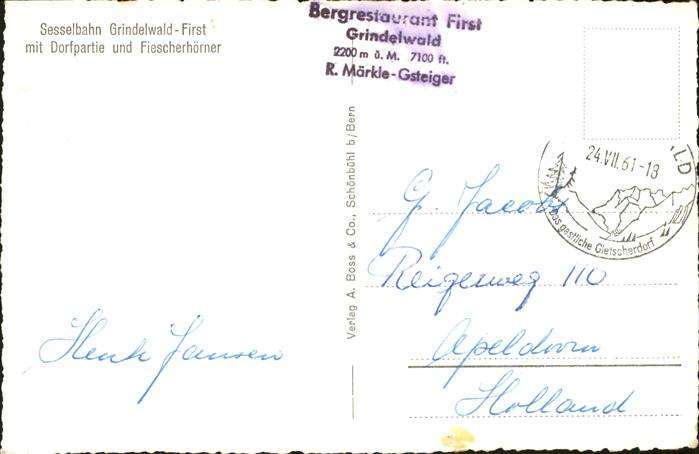 Sesselbahn Grindelwald-First
mit Dorfpartie und Fiescherhörner
Bergrestaurant First
Grindelwald
2200 m ü. M. 7100 ft.
R. Märkle-Gsteiger
24.VII.61-18
LD
Das gastliche Gletscherdorf
Verlag A. Boss & Co., Schönbühl b/Bern
G. Jacobs
Reigerweg 110
Apeldoorn
Holland
Henk Jansen